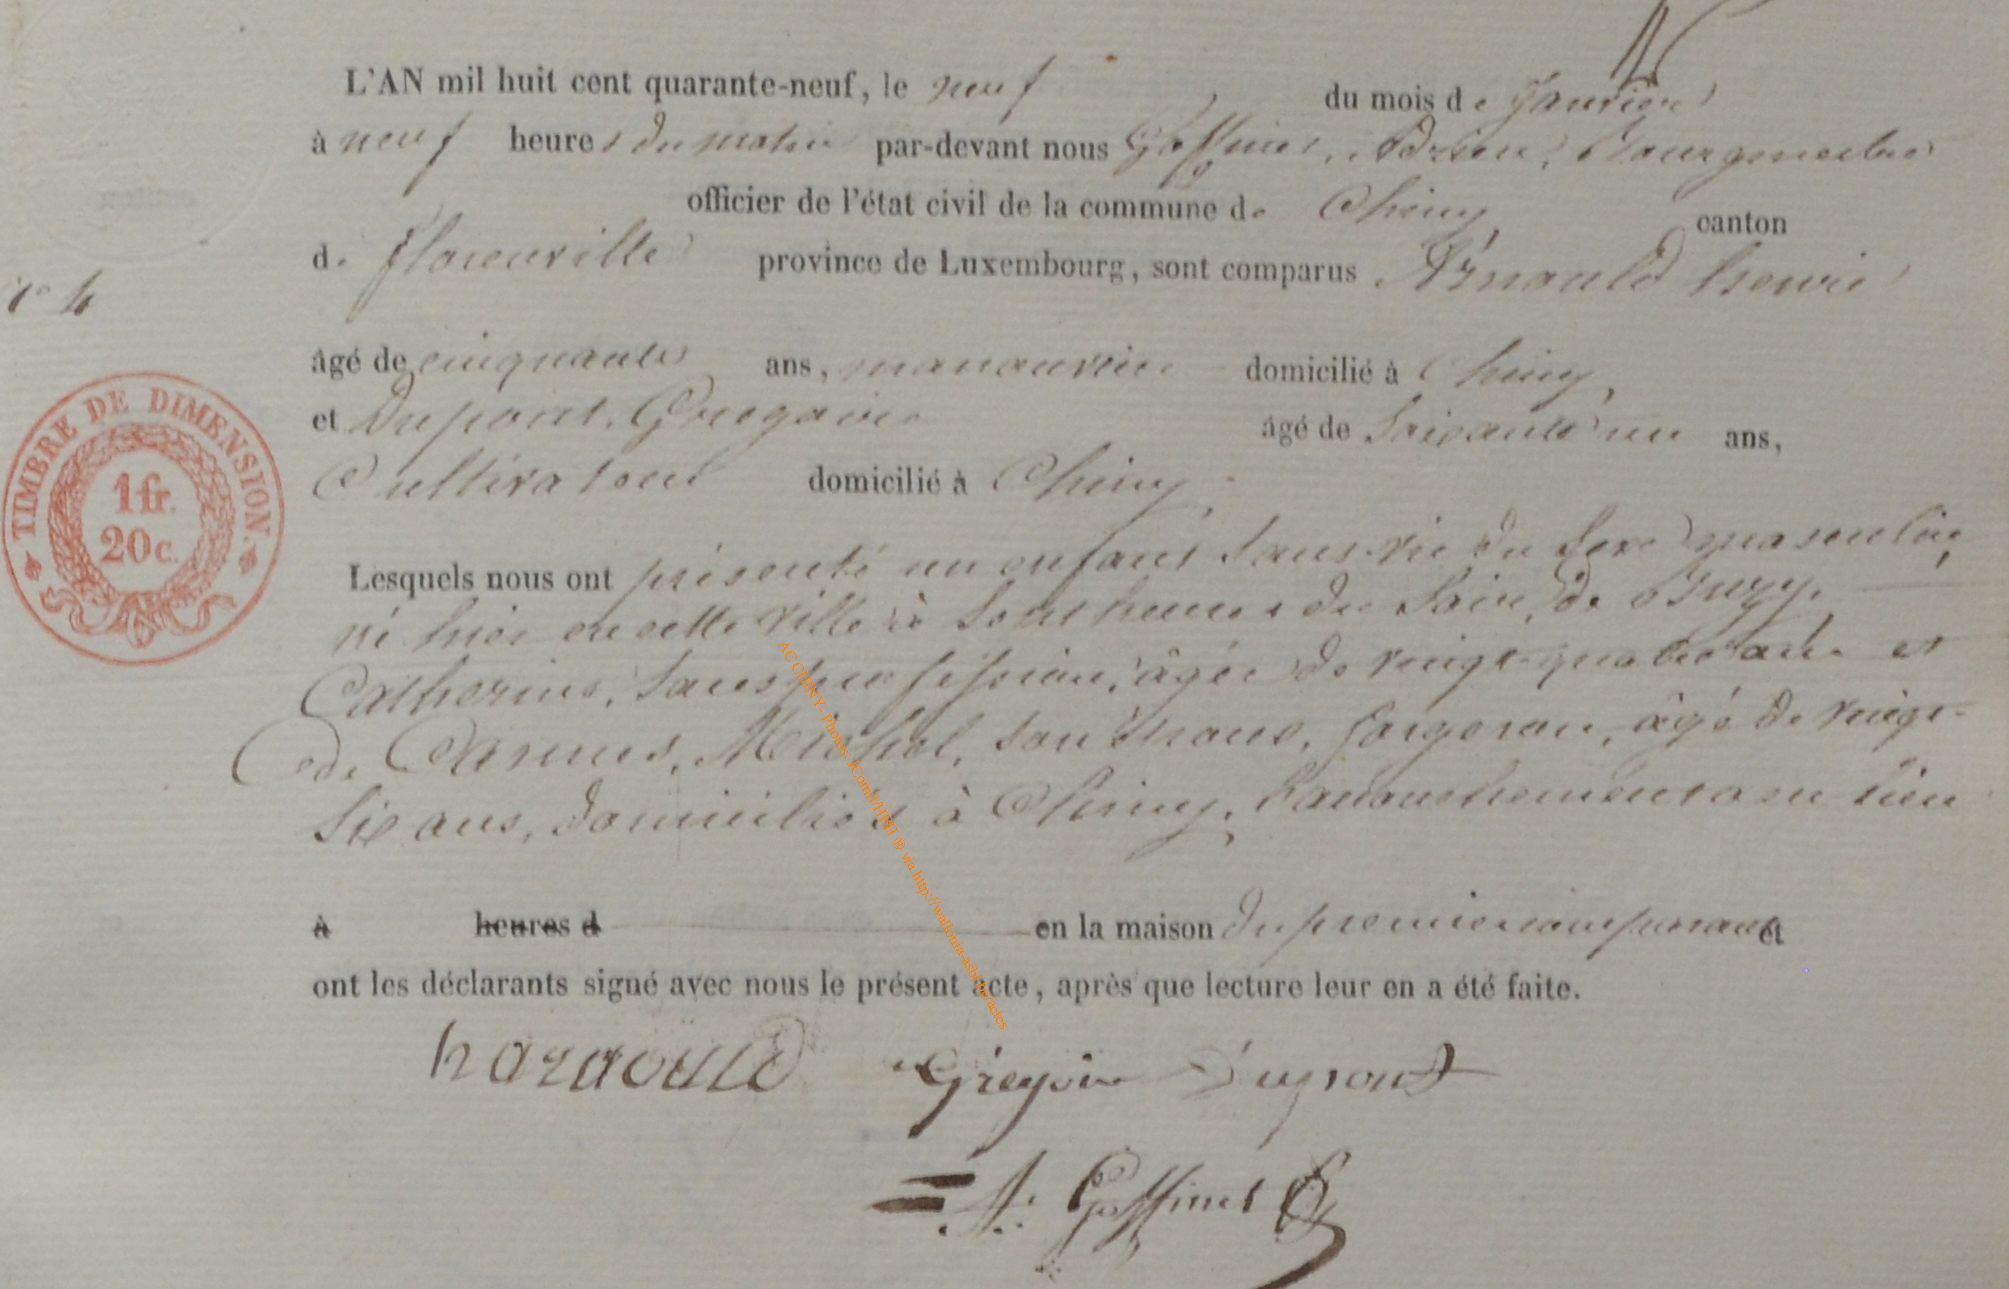 L'AN mil huit cent quarante-neuf, le neuf du mois de Janvier
à neuf heures du matin par-devant nous Goffinet, Adrien, Bourgmestre
officier de l'état civil de la commune de Chiny canton
de florenville province de Luxembourg, sont comparus Arnould henri
n° 4
âgé de cinquante ans, manouvrier domicilié à Chiny,
et Dupont, Gregoire âgé de Soixante un ans,
Cultivateur domicilié à Chiny,
TIMBRE DE DIMENSION.
1 fr.
20 c.
Lesquels nous ont présenté un enfant sans-vie du sexe masculin,
né hier en cette ville à sept heures du soir, de Buzy,
Catherine, sans profession, âgée de vingt-quatre ans et
de Carmes, Michel, son époux, forgeron, âgé de vingt-
six ans, domiciliés à Chiny, l'accouchement a eu lieu
à heures d en la maison du premier comparant et
ont les déclarants signé avec nous le présent acte, après que lecture leur en a été faite.
harnould Grégoire Dupont
A. Goffinet
AC CHINY - Photos via http://wallonia-asbl.be/actes